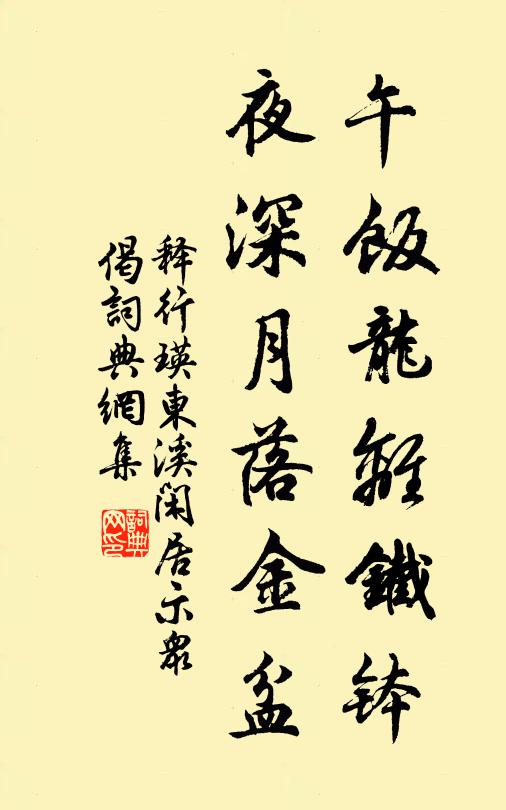 午飯龍離鐵鉢
夜深月落金盆
释行瑛東溪閑居示眾
偈詞典網集
詞典网印